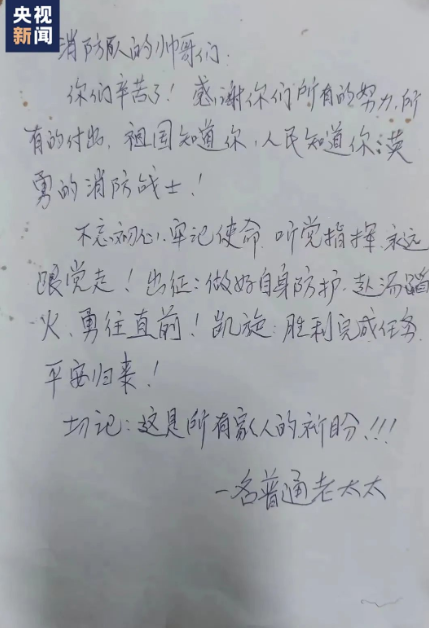 央视
新闻
消防队的帅哥们:
你们辛苦了！感谢你们所有的努力,所
有的付出,祖国知道你,人民知道你:英
勇的消防战士！
不忘初心,牢记使命,听党指挥,永远
跟党走！出征:做好自身防护,赴汤蹈
火、勇往直前！凯旋:胜利完成任务,
平安归来！
切记:这是所有家人的祈盼!!!
一名普通老太太